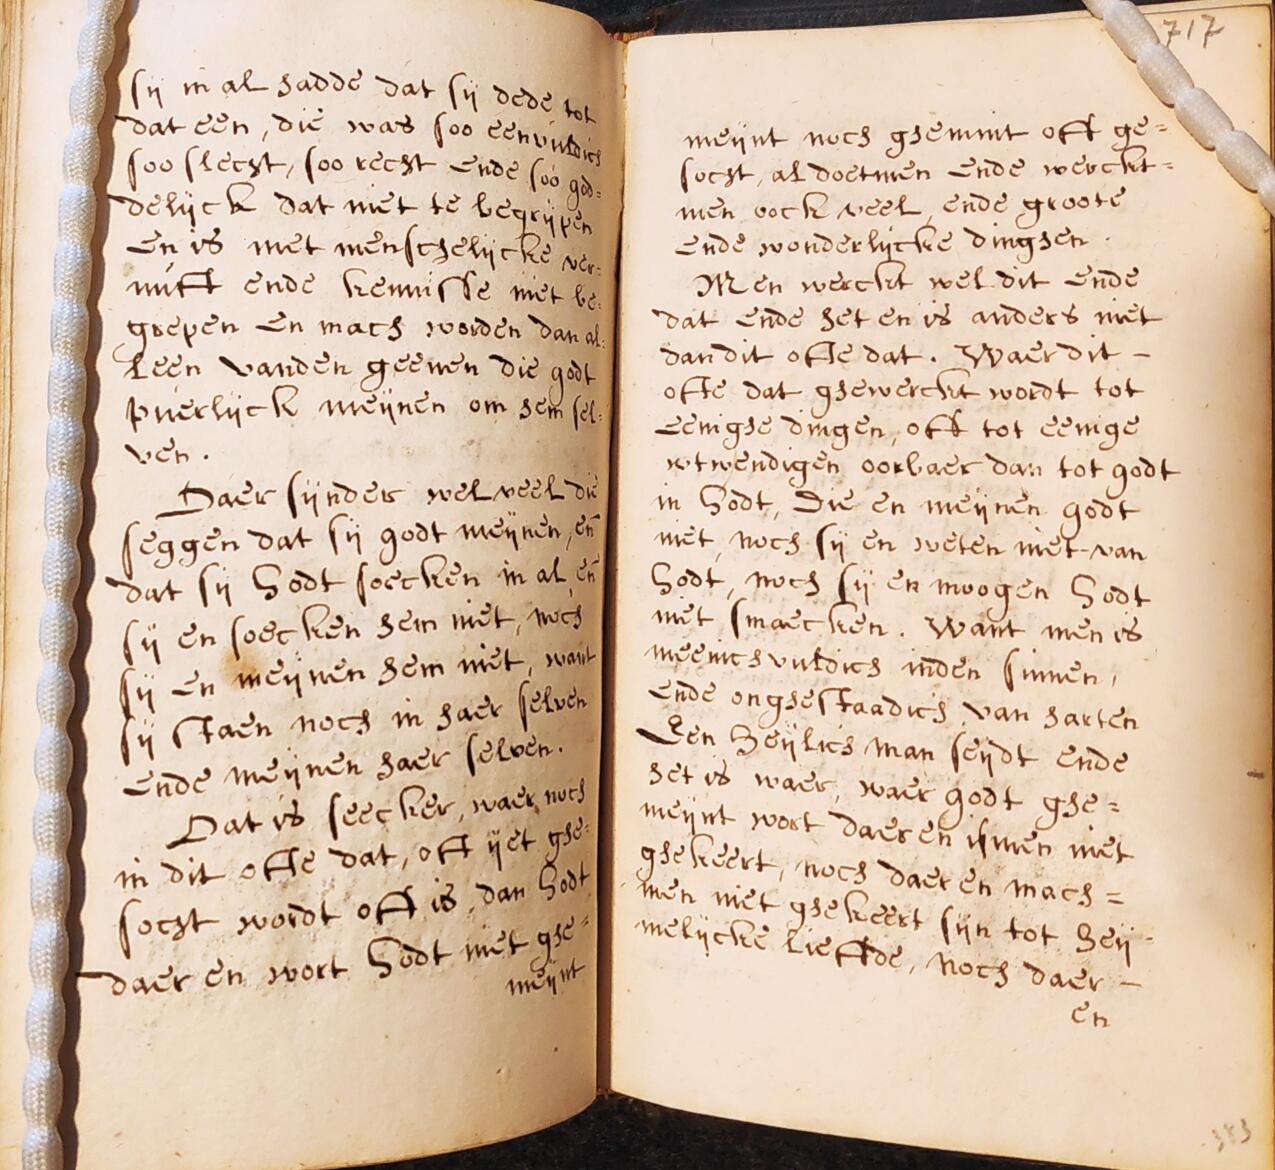 sij in al hadde dat sij dede tot
dat een, die was soo eenvuldich
soo slecht, soo recht ende soo god-
delijck dat niet te begrijpen
en is met menschelijcke ver-
nuft ende kennisse niet be-
grepen en mach worden dan al-
leen vanden geenen die godt
puerlijck meijnen om hem sel-
ven.
Daer sijnder wel veel die
seggen dat sij godt meijnen, en
dat sij Godt soecken in al, en
sij en soecken hem niet, noch
sij en meijnen hem niet, want
sij staen noch in haer selven
ende meijnen haer selven.
Dat is seecker, waer noch
in dit ofte dat, oft ijet ghe-
socht wordt oft is, dan Godt
daer en wort Godt niet ghe-
meijnt
717
meijnt noch ghemint oft ge=
socht, al doetmen ende werckt=
men oock veel, ende groote
ende wonderlijcke dinghen.
Men werckt wel dit ende
dat ende het en is anders niet
dan dit ofte dat. Waer dit –
ofte dat ghewerckt wordt tot
eenighe dingen, oft tot eenige
wtwendigen oorbaer dan tot godt
in Godt, Die en meijnen godt
niet, noch sij en weten niet van
Godt, noch sij en moogen Godt
niet smaecken. Want men is
meenichvuldich inden sinnen,
ende onghestaadich van harten
Een Heijlich man seijdt ende
het is waer, waer godt ghe=
meijnt wort daer en ismen niet
ghekeert, noch daer en mach=
men niet ghekeert sijn tot Heij-
melijcke liefde, noch daer –
en
383